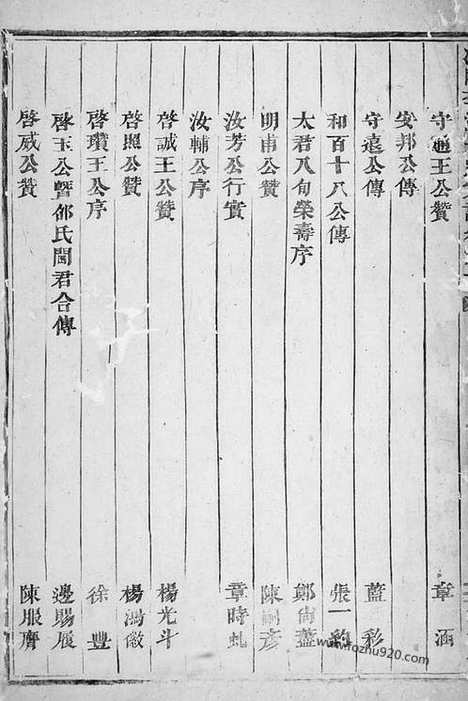 守通王公贊 章涵
安邦公傳
守遠公傳 藍彩
和百十八公傳 張一
太君八旬榮壽序 鄭尚藎
明甫公贊 陳嗣彥
汝芳公行實 章時虬
汝輔公序
啓誠王公贊 楊光斗
啓照公贊 楊鴻徽
啓瓚王公序 徐豐
啓玉公暨邵氏閫君合傳 邊賜展
啓威公贊 陳服膺
www.fozhu920.com